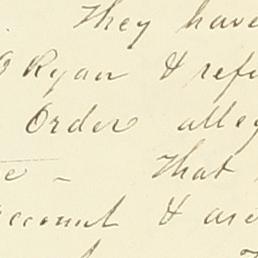 They have
O'Ryan & refu
Order alleg
e - That
account & are